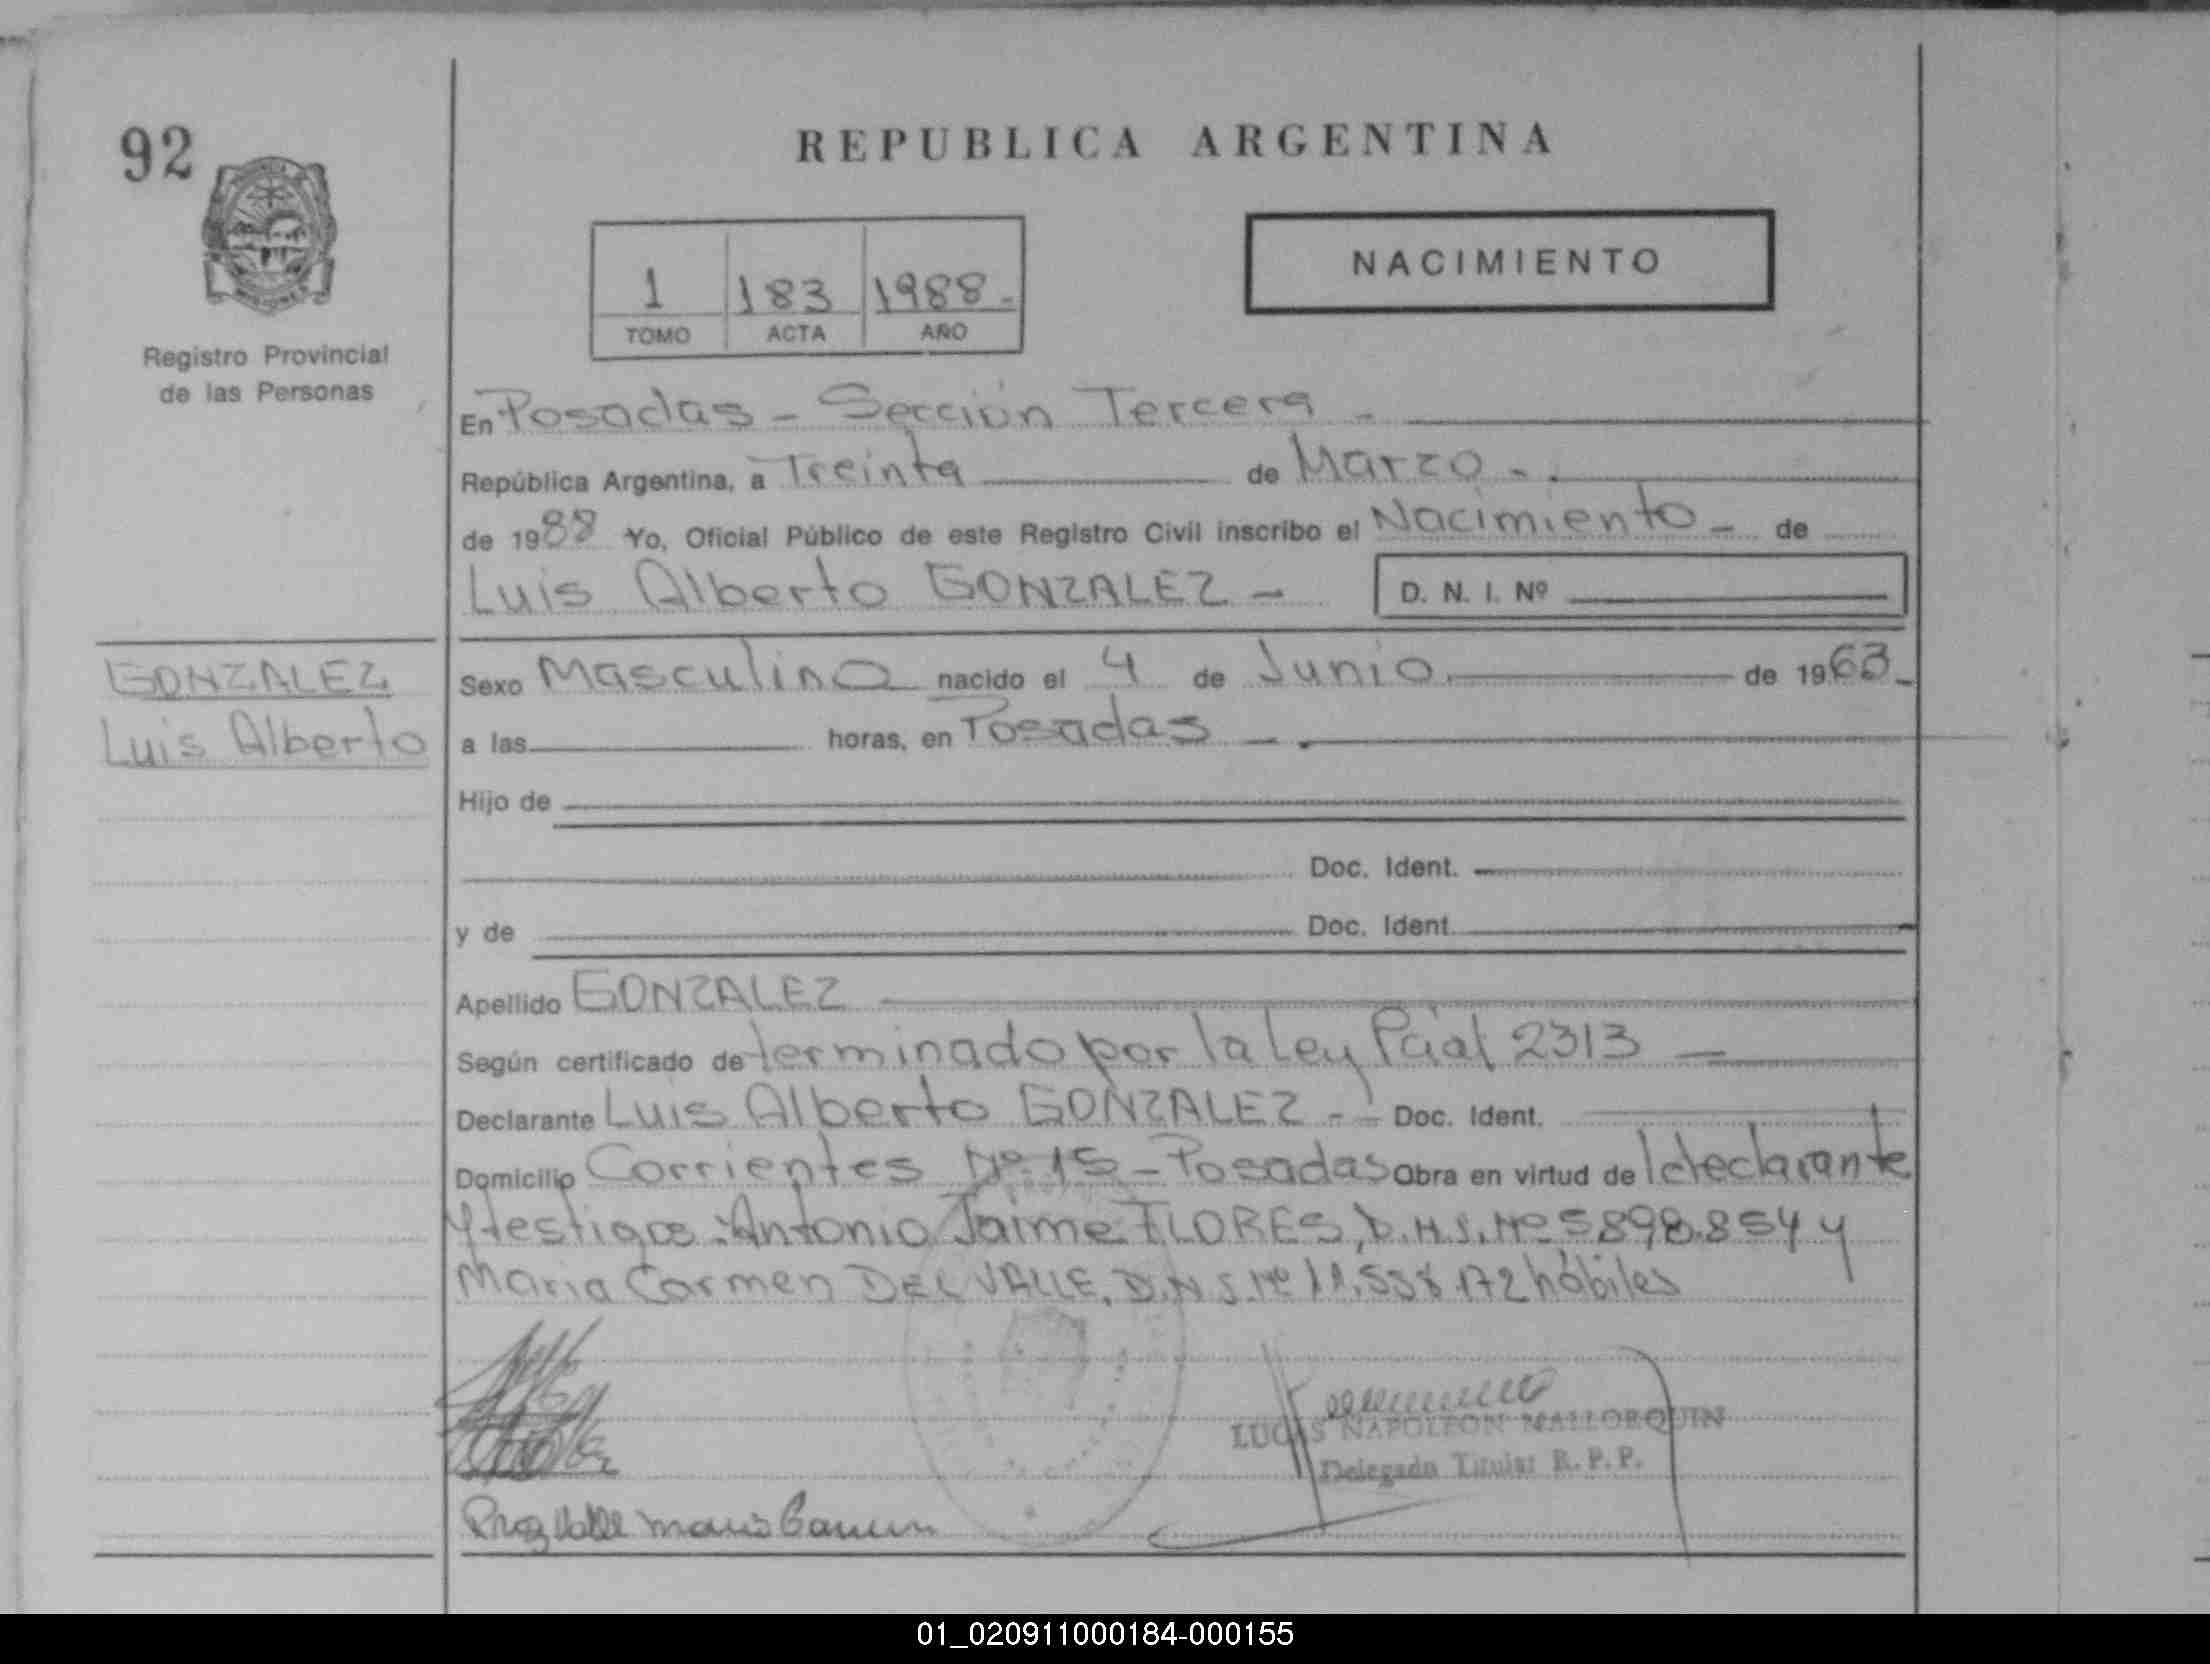 92
REPUBLICA ARGENTINA
NACIMIENTO
1 183 1988.-
TOMO ACTA AÑO
Registro Provincial
de las Personas
En Posadas - Sección Tercera -
República Argentina, a Treinta de Marzo -.
de 1988 Yo, Oficial Público de este Registro Civil inscribo el Nacimiento - de
Luis Alberto GONZALEZ -
D. N. I. Nº
GONZALEZ
Luis Alberto
Sexo Masculino nacido el 4 de Junio de 1963 -
a las horas, en Posadas - .
Hijo de
Doc. Ident.
y de Doc. Ident.
Apellido GONZALEZ
Según certificado determinado por la Ley Pcial 2313 -
Declarante Luis Alberto GONZALEZ - - Doc. Ident.
Domicilio Corrientes Nº 15 - Posadas Obra en virtud de l declarante
y testigos: Antonio Jaime FLORES, D.N.I. Nº 5898.854 y
Maria Carmen DEL VALLE, D.N.I. Nº 11.558.172 hábiles
LUCAS NAPOLEON MALLORQUIN
Delegado Titular R. P. P.
01_020911000184-000155